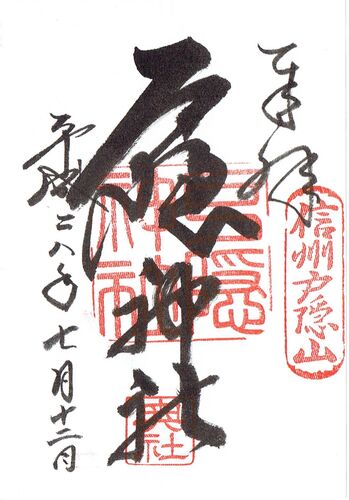 奉拝
信州戸隠山
戸隠神社
戸隠神社
奥社
平成二八年七月十二日